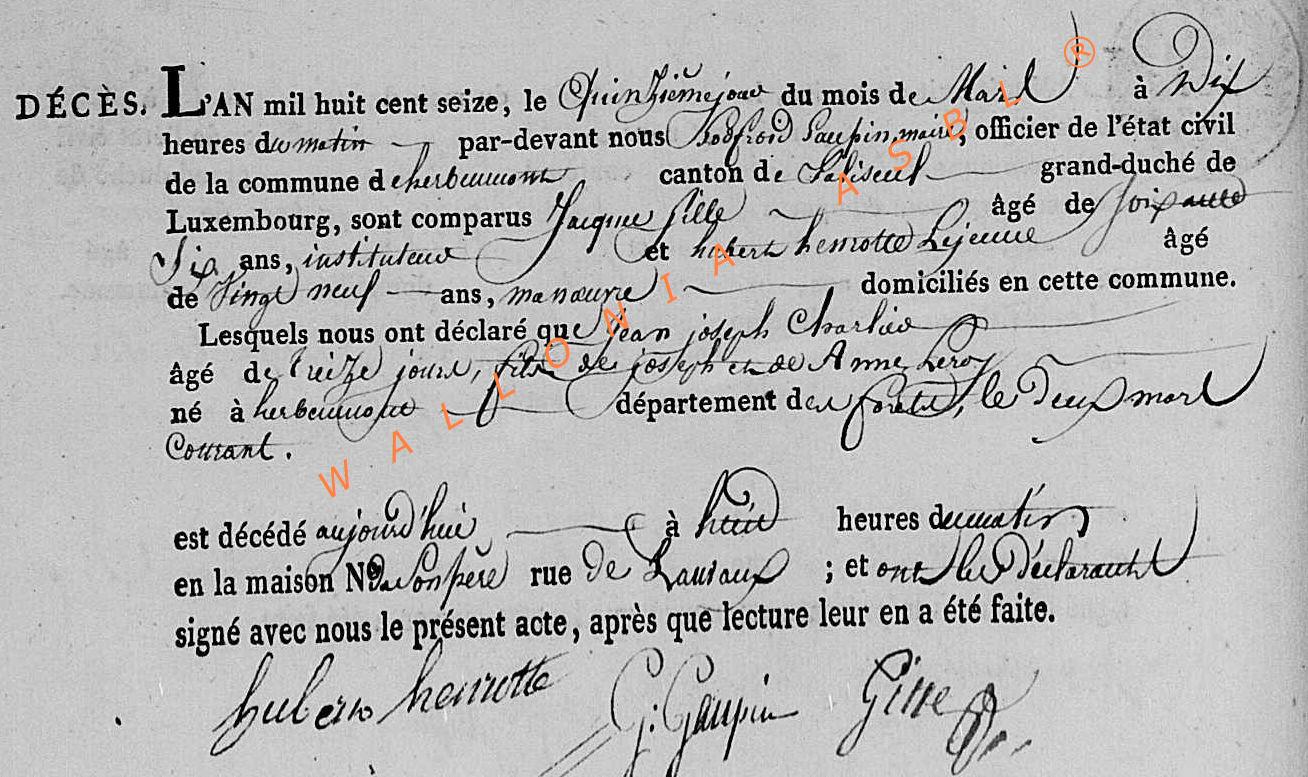 DÉCÈS. L'AN mil huit cent seize, le Quinzieme jour du mois de Mars à Dix
heures du matin par-devant nous Godfroid Gaupin maire, officier de l'état civil
de la commune d'herbeumont canton de Paliseul grand-duché de
Luxembourg, sont comparus Jacque Gille âgé de soixante
Six ans, instituteur et hubert henrotte Lejeune âgé
de Vingt neuf ans, manoeuvre domiciliés en cette commune.
Lesquels nous ont déclaré que Jean joseph Charlier
âgé de treize jours, fils de joseph et de Anne Leroy
né à herbeumont département des forets, le Deux mars
Courant.
est décédé aujourd'hui à huit heures du matin
en la maison N° de Son père rue de ; et ont les Déclarants
signé avec nous le présent acte, après que lecture leur en a été faite.
hubert henrotte G. Gaupin Gille
WALLONIA ASBL ®